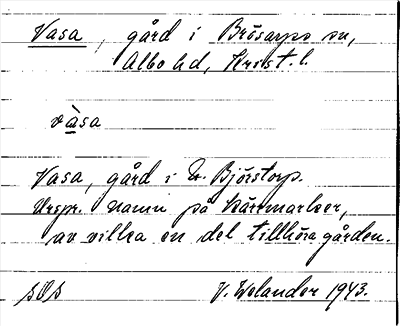 Vasa, gård i Brösarps sn,
Albo hd, Krist. l.
vàsa
Vasa, gård i N. Björstorp.
Urspr. namn på kärrmarker,
av vilka en del tillhöra gården.
sOs V. Welander 1943.